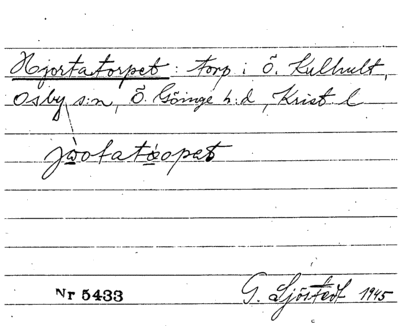 Hjortatorpet : torp i Ö. Kulhult,
Osby s:n, Ö. Göinge h:d, Krist. l
jo̱otato̱opet
Nr 5433 G. Sjöstedt 1945